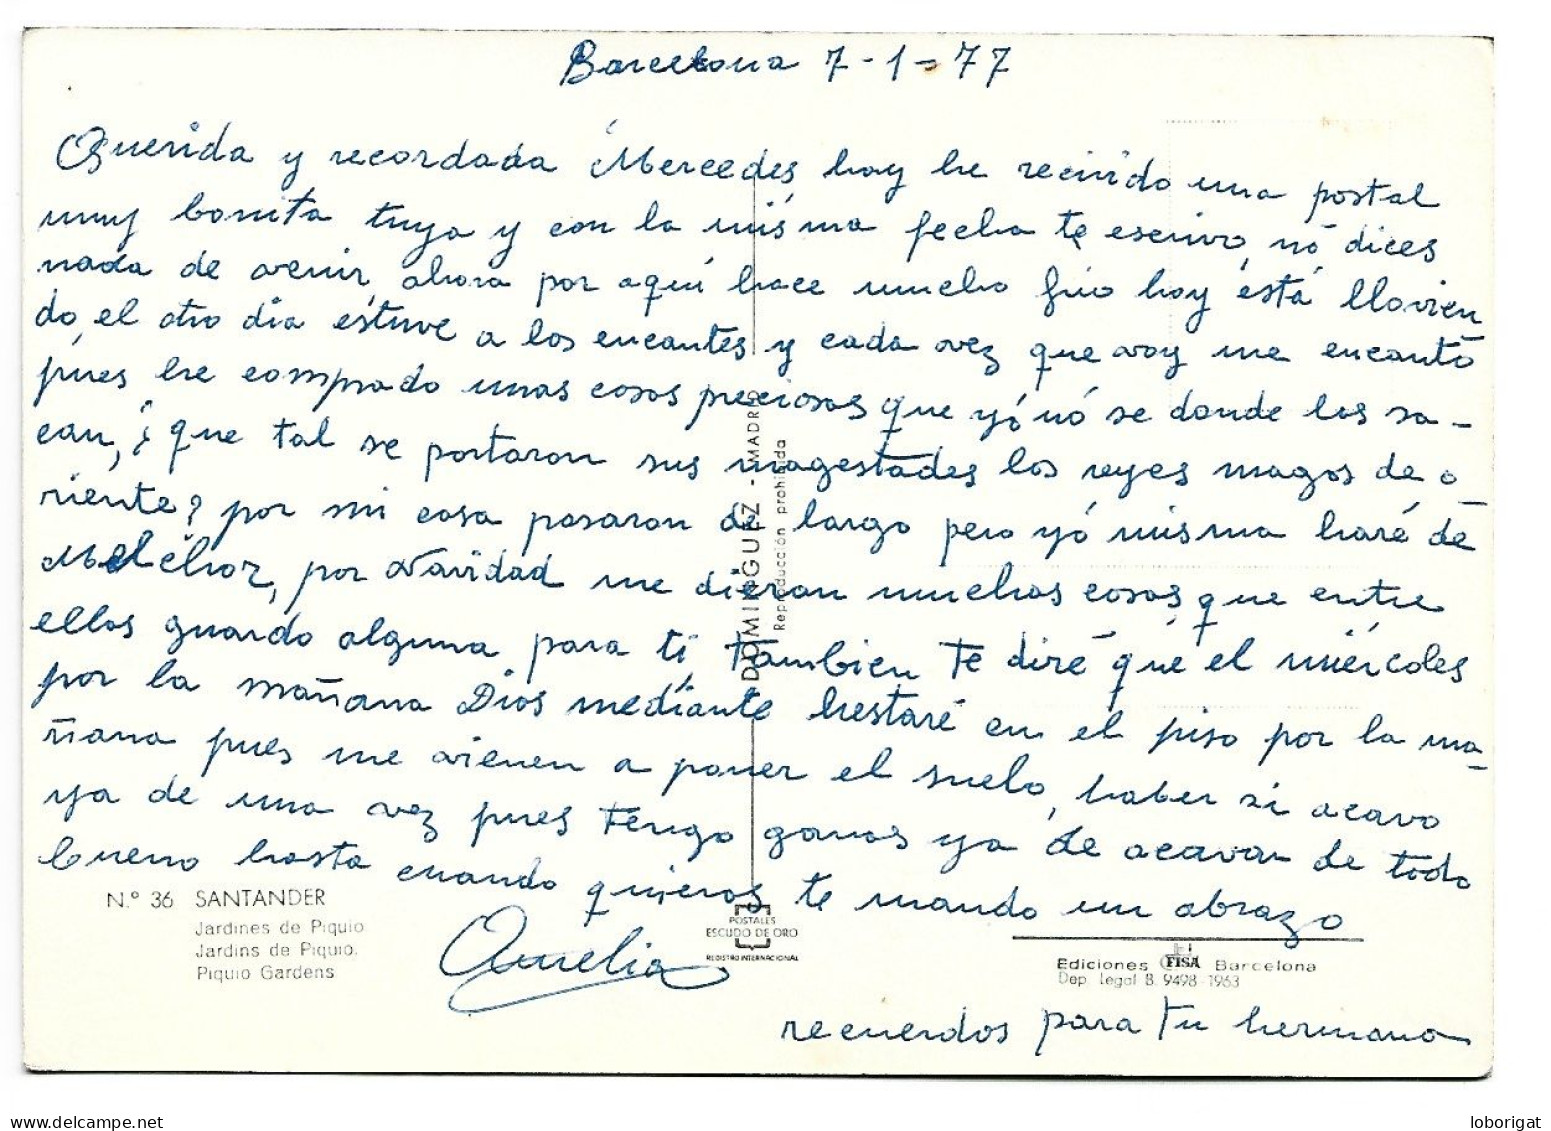 Barcelona 7-1-77
Querida y recordada Mercedes, hoy he recivido una postal
muy bonita tuya y con la misma fecha te escrivo, nó dices
nada de venir, ahora por aquí hace mucho frio hoy está llovien
do, el otro dia estuve a los encantes y cada vez que voy me encantó
pues he comprado unas cosas preciosas que yó nó se donde los sa-
can, ¿que tal se portaron sus magestades los reyes magos de o-
riente? por mi casa pasaron de largo pero yó misma haré de
Melchor, por Navidad me dieron muchas cosas, que entre
ellas guardo alguna para ti, tambien te diré que el miércoles
por la mañana Dios mediante hestaré en el piso por la ma-
ñana pues me vienen a poner el suelo, haber si acavo
ya de una vez pues tengo ganas ya de acavar de todo
bueno hasta cuando quieras te mando un abrazo
Aurelia
recuerdos para tu hermana
N.º 36 SANTANDER
Jardines de Piquio
Jardins de Piquio.
Piquio Gardens
DOMINGUEZ - MADRID
Reproducción prohibida
POSTALES
ESCUDO DE ORO
REGISTRO INTERNACIONAL
Ediciones FISA Barcelona
Dep. Legal B. 9498-1963
loborigat